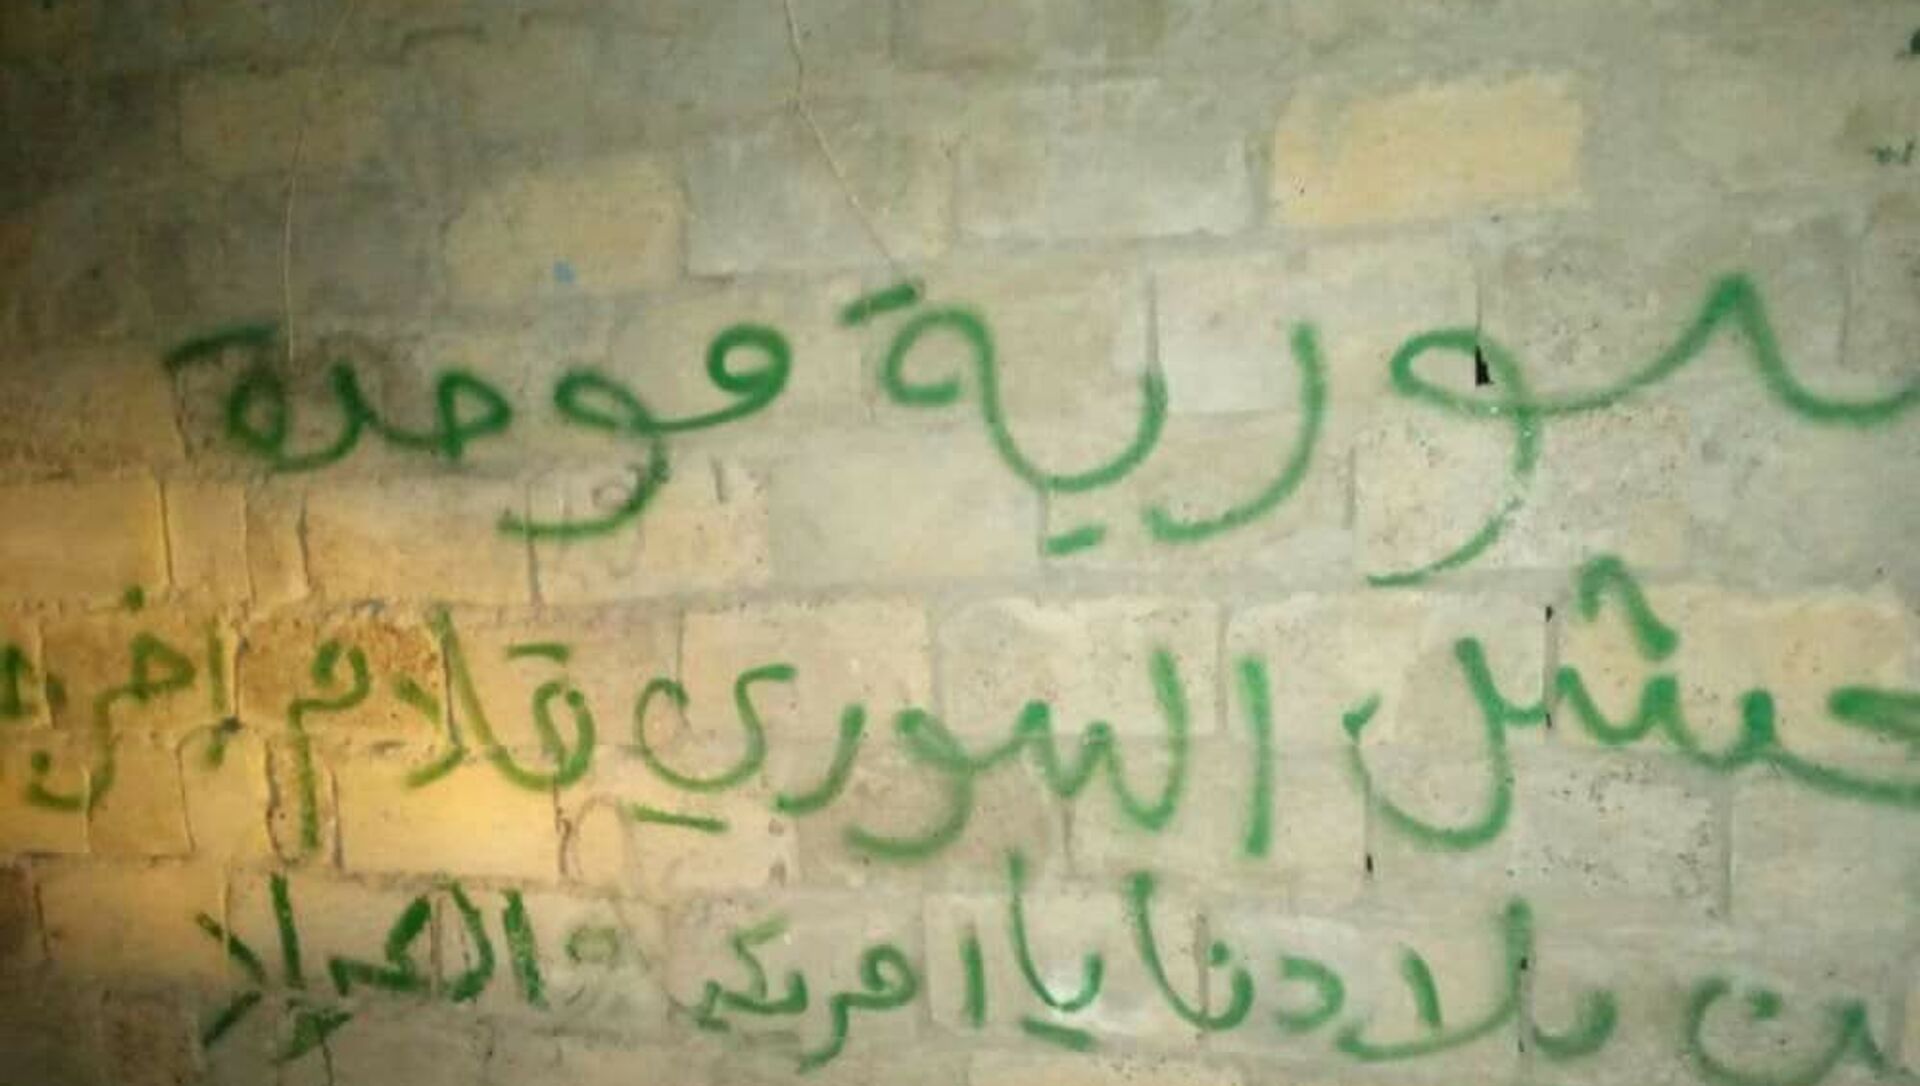 سورية موحدة
جيش السوري قادم اخرجو
من بلادنا يا امريكي